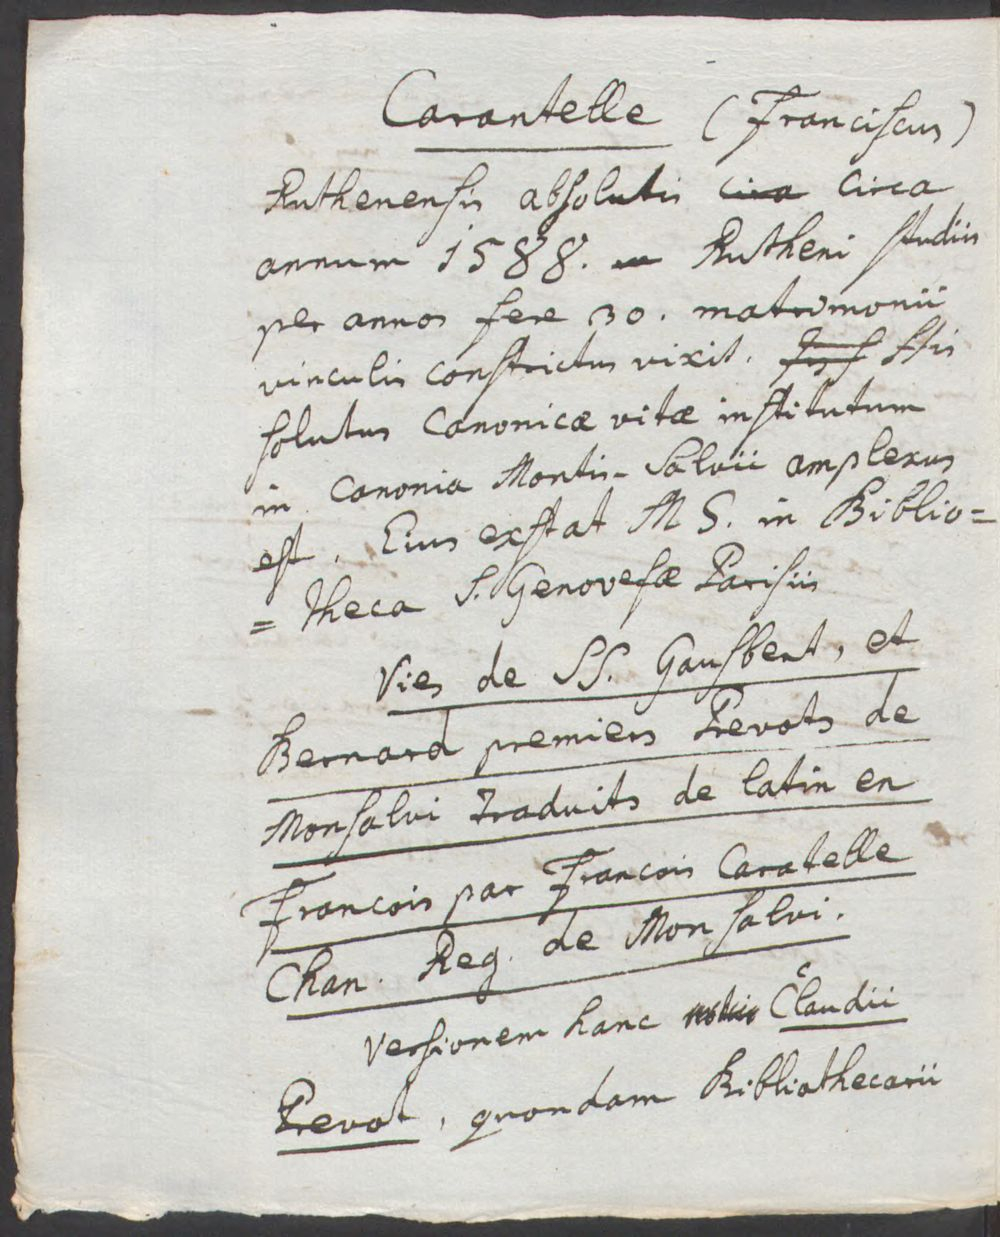 Carantelle (Franciscus)
Ruthenensis absolutis circa circa
annum 1588. Rutheni studiis
per annos fere 30. matrimonii
vinculis constrictus vixit. His
solutus Canonicæ vitæ institutum
in Canonia Montis-Salvii amplexus
est. Eius exstat MS. in Biblio=
=theca S. Genovefæ Parisiis
Vies de SS. Gausbert, et
Bernard premiers Prevots de
Monsalvi traduits de latin en
Francois par Francois Caratelle
Chan. Reg. de Monsalvi.
Versionem hanc Claudii
Prevot, quondam Bibliothecarii